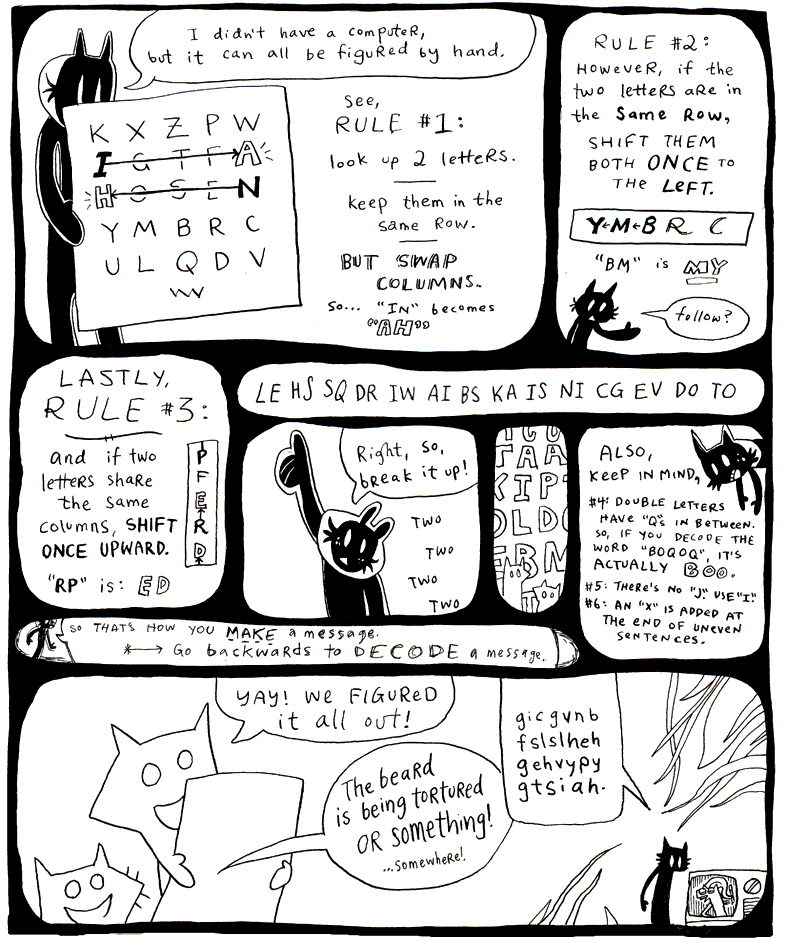 I didn't have a computer,
but it can all be figured by hand.
K X Z P W
I G T F A
H O S E N
Y M B R C
U L Q D V
See,
RULE #1:
look up 2 letters.
keep them in the
same row.
BUT SWAP
COLUMNS.
So... "IN" becomes
"AH"
RULE #2:
However, if the
two letters are in
the Same Row,
SHIFT THEM
BOTH ONCE TO
THE LEFT.
Y M B R C
"BM" is MY
follow?
LASTLY,
RULE #3:
and if two
letters share
the same
columns, SHIFT
ONCE UPWARD.
"RP" is: ED
P
F
E
R
D
LE HS SQ DR IW AI BS KA IS NI CG EV DO TO
Right, so,
break it up!
TWO
TWO
TWO
TWO
TAA
KIP
OLD
ALSO,
KEEP IN MIND,
#4: DOUBLE LETTERS
HAVE "Q"s IN BETWEEN.
SO, IF YOU DECODE THE
WORD "BOQOQ", IT'S
ACTUALLY BOO.
#5: THERE'S NO "J." USE "I."
#6: AN "X" IS ADDED AT
THE END OF UNEVEN
SENTENCES.
SO THAT'S HOW YOU MAKE a message.
Go backwards to DECODE a message.
YAY! WE FIGURED
it all out!
The beard
is being tortured
OR something!
...somewhere!
gicgvnb
fslslheh
gehvypy
gtsiah.